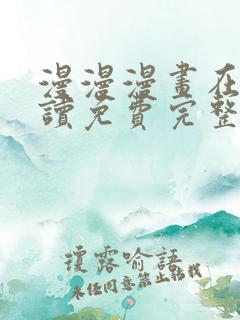 漫漫漫畫在
讀免費完整
瓊露喻語
未經同意禁止轉載